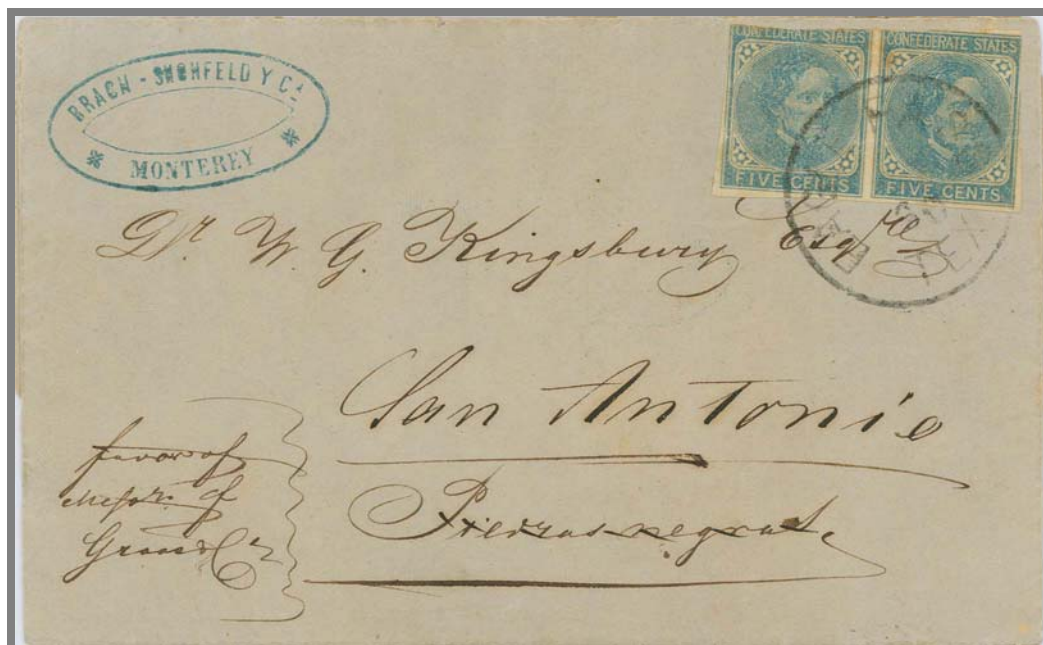 BRACH - SCHÖNFELD Y Cª
MONTEREY
CONFEDERATE STATES
FIVE CENTS
CONFEDERATE STATES
FIVE CENTS
TEX
Dr. W. G. Kingsbury Esqre
San Antonio
Piedrasnegras
favor of
Messrs. of
Groos & Co